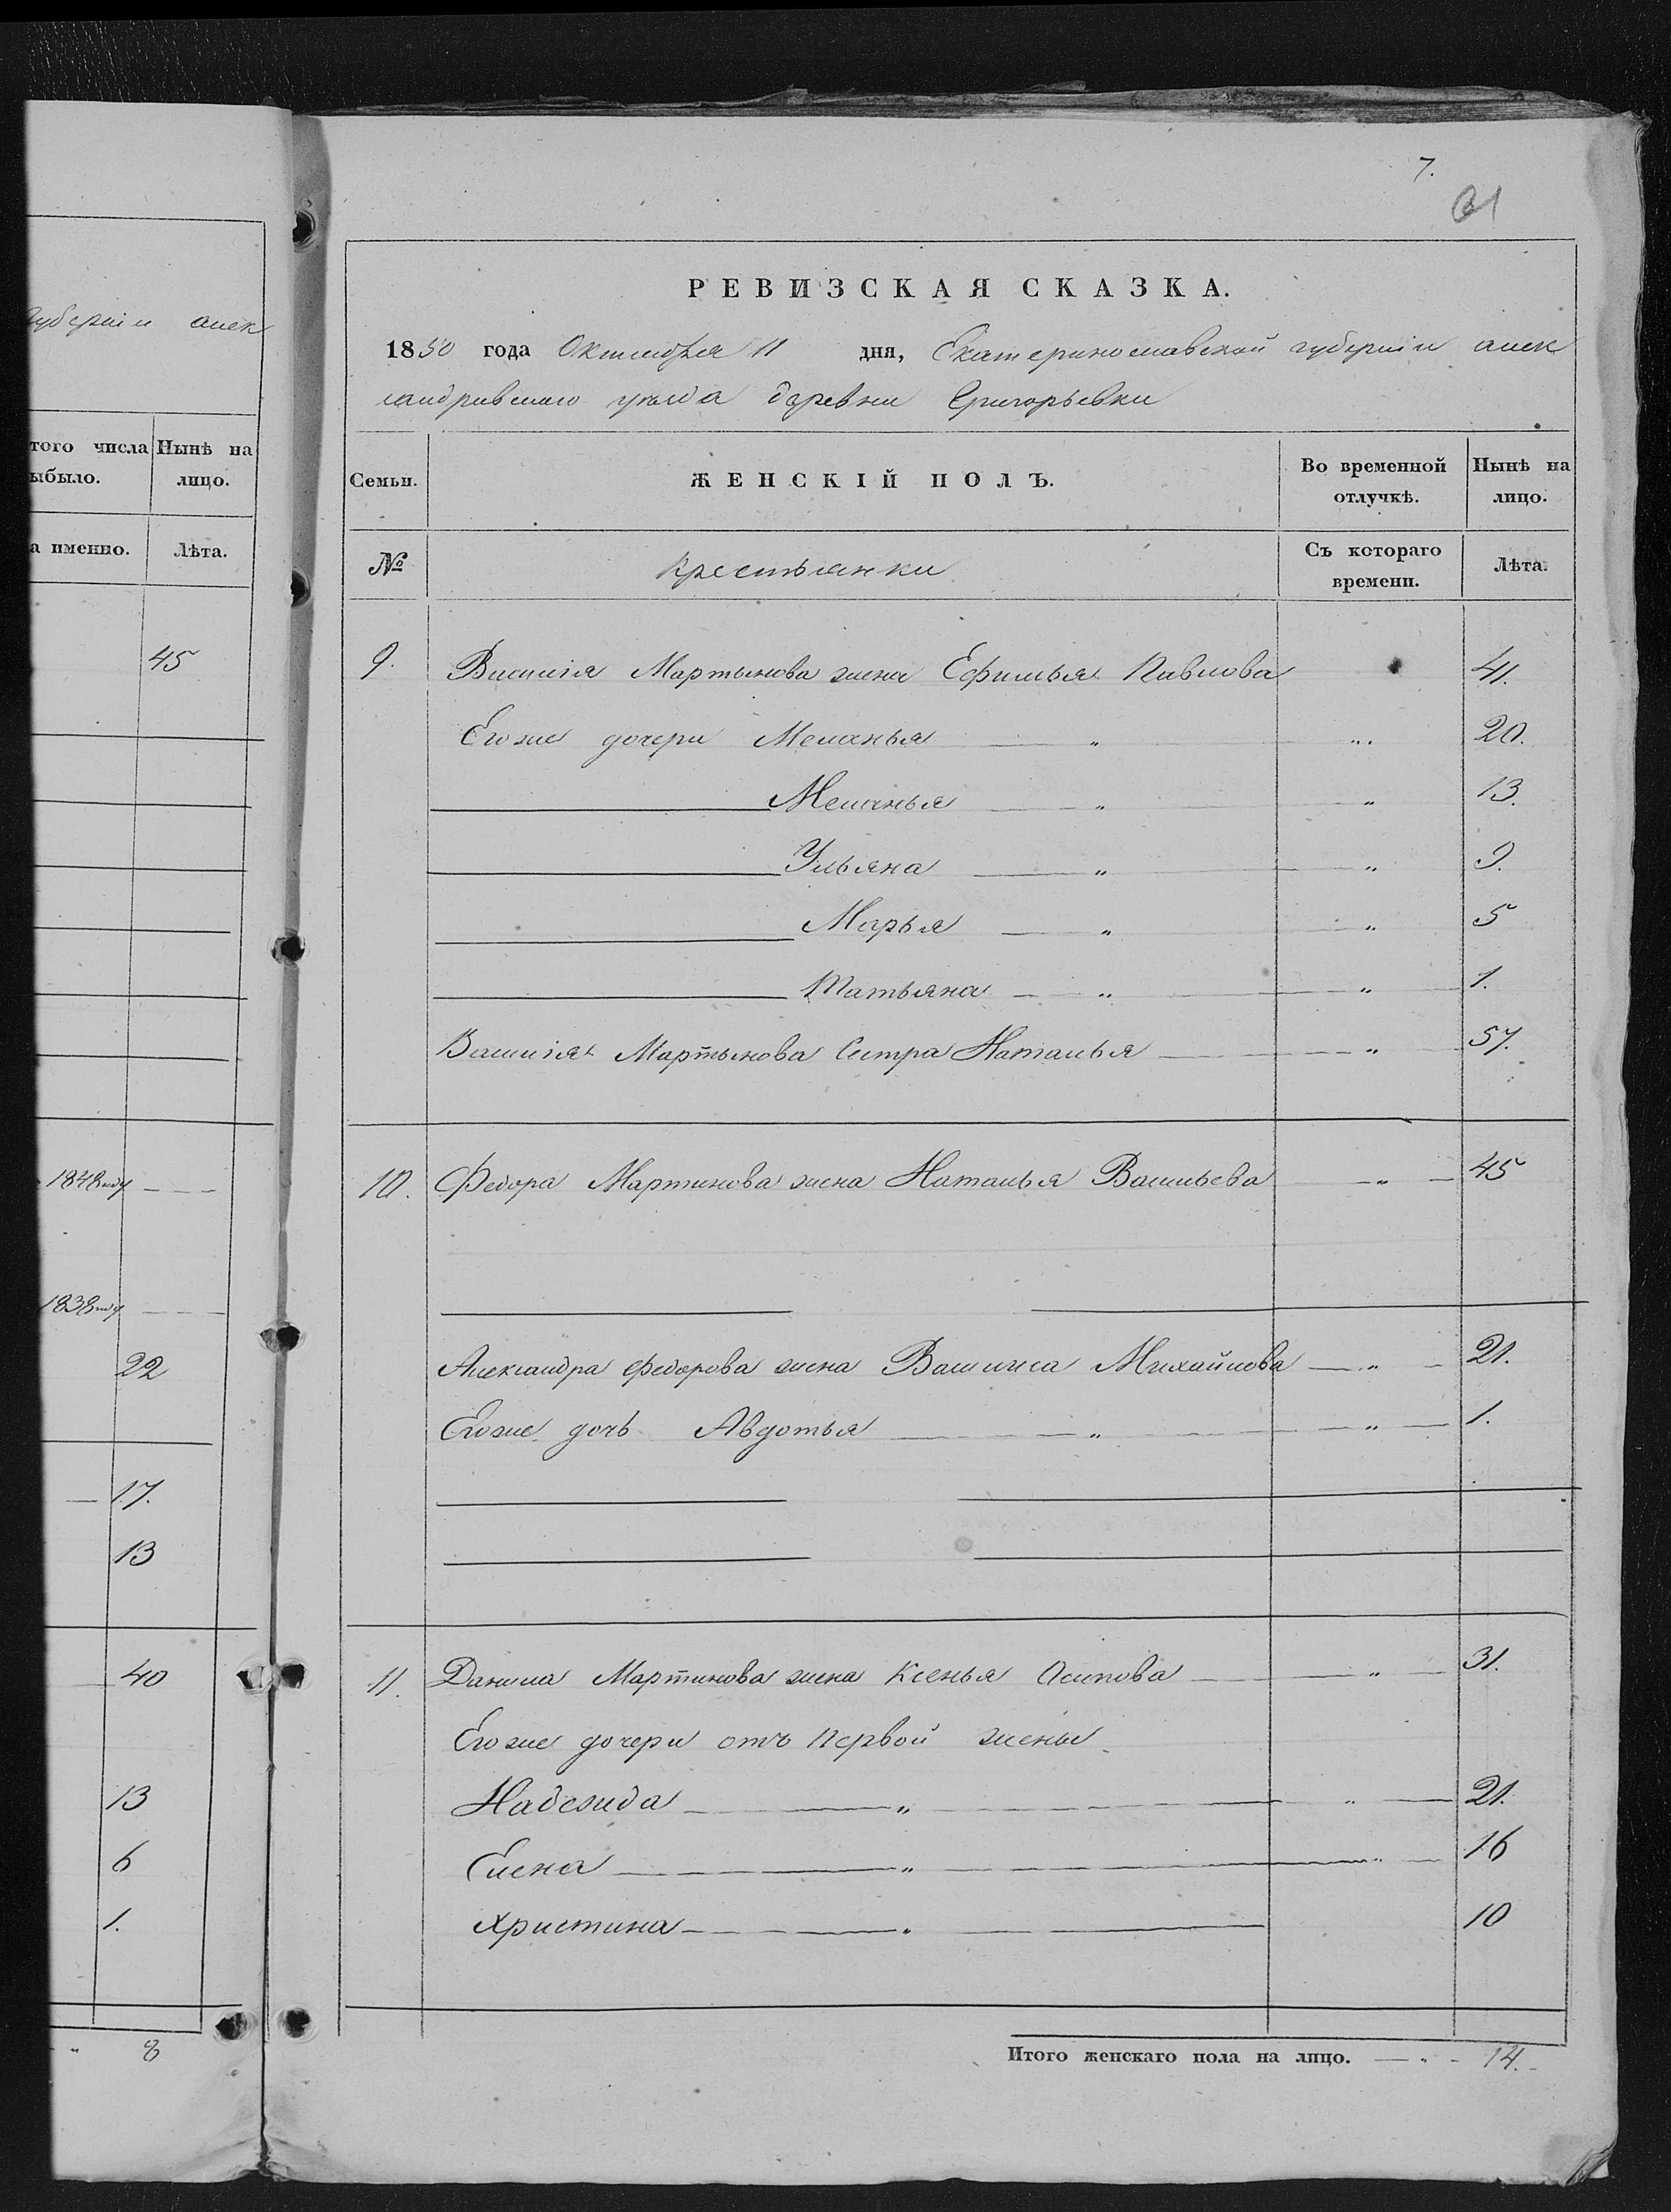 губерніи алек
того числа
ыбыло.
Нынѣ на
лицо.
а именно.
Лѣта.
45
1848 году
1838 году
22
17.
13
40
13
6
1.
8
7.
61
РЕВИЗСКАЯ СКАЗКА.
1850 года Октября 11 дня, Екатеринославской губерніи алек
сандровскаго уѣзда деревни Григорьевки
Семьи.
ЖЕНСКІЙ ПОЛЪ.
Во временной
отлучкѣ.
Нынѣ на
лицо.
№
Крестьянки
Съ котораго
времени.
Лѣта.
9. Василія Мартынова жена Ефимья Павлова 41.
Егоже дочери Меланья — " " 20.
Меланья — " " 13.
Ульяна — " " 9.
Марья — " " 5
Татьяна — " " 1.
Василія Мартынова Сестра Наталья — " 57.
10. Федора Мартинова жена Наталья Васильева — " — 45
Александра Федорова жена Василиса Михайлова — " — 21.
Егоже дочь Авдотья — " — " — 1.
11. Данила Мартинова жена Ксенья Осипова — " — 31.
Егоже дочери отъ первой жены
Надежида — " — " — 21.
Елена — " — " — 16
Христина — " — 10
Итого женскаго пола на лицо. — " - 14.